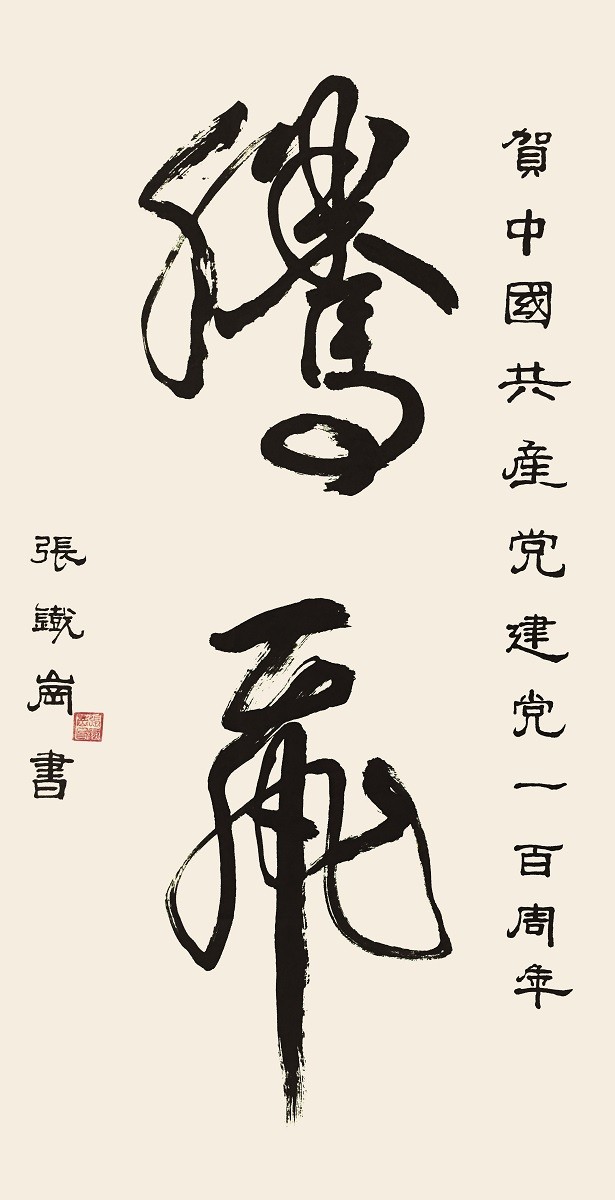 賀中國共産党建党一百周年
騰飛
張鐵崗書